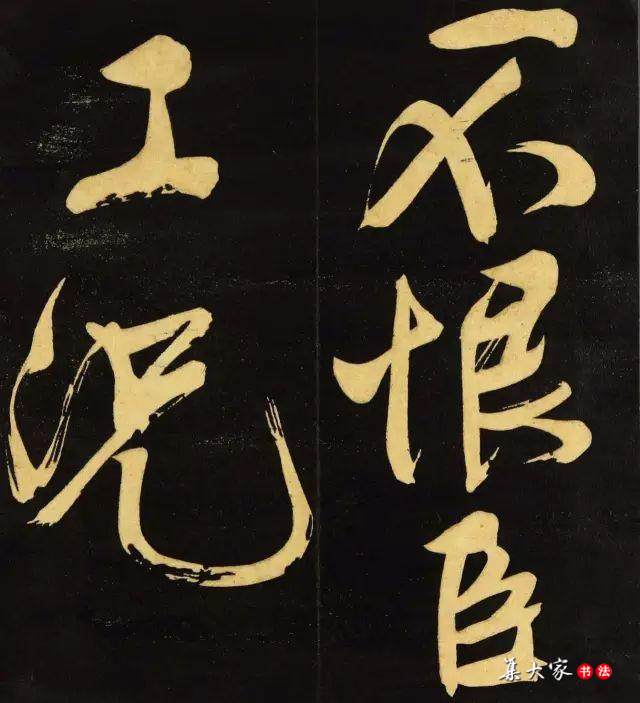 不恨臣
工况
集大家书法